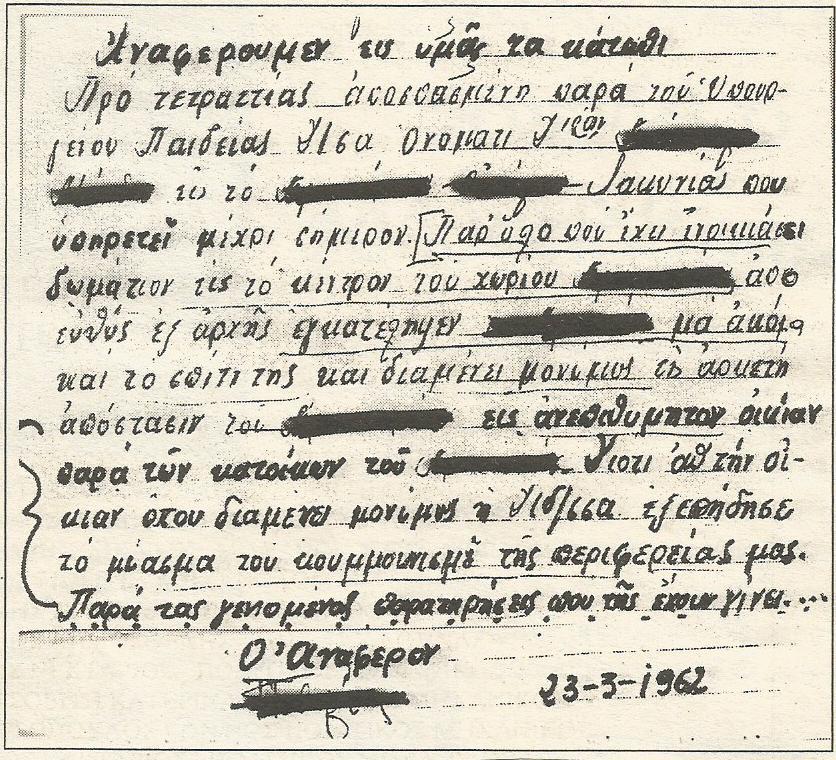 Αναφερουμεν εις υμᾶς τα κάτωθι
Πρό τετραετίας ἀποσπασμένη παρά τοῦ Υπουρ-
γείου Παιδείας δ/σα ονοματι
εις τό Λακωνίας που
ὑπηρετεῖ μέχρι σήμερον. Παρ' ὅλο πού ἔχει ἐνοικιάσει
δωμάτιον εις τό κέντρον τοῦ χωρίου ἀπό
εὐθύς ἐξ ἀρχῆς ἐγκατέληψεν μά ἀκόμα
καί το σπίτι της και διαμένει μονίμως εἰς ἀρκετή
ἀπόστασιν τοῦ εις ἀνεπιθυμητον οικίαν
παρά τῶν κατοίκων τοῦ Γιοτι αὐτήν οἰ-
κιαν ὁπου διαμενει μονίμως ἡ ξεπήδησε
τό μίασμα του κουμμουνισμοῦ τῆς περιφερείας μας.
Παρά τας γενομένας παρατηρήσεις που τῆς ἔχουν γίνει...
Ο Αναφερον
23-3-1962